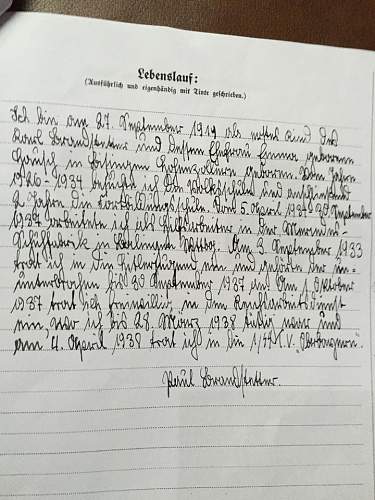 Lebenslauf:
(Ausführlich und eigenhändig mit Tinte geschrieben.)
Ich bin am 27. September 1919 als erstes Kind des
Karl Brandstetter und dessen Ehefrau Emma geborene
in Hohenzollern geboren. Vom Jahre
1926-1934 besuchte ich die Volksschule und anschließend
2 Jahre die Fortbildungsschule. Vom 5. April 1934-25. September
1937 arbeitete ich als Hilfsarbeiter in der
Schuhfabrik in Wttbg. Am 3. September 1933
trat ich in die Hitlerjugend ein und gehörte der
ununterbrochen bis 30 September 1937 an. Am 1. Oktober
1937 trat ich freiwillig in den Reichsarbeitsdienst
ein, wo ich bis 28. März 1938 tätig war und
am 4. April 1938 trat ich in die 1/SS T.V. "Oberbayern".
Paul Brandstetter.